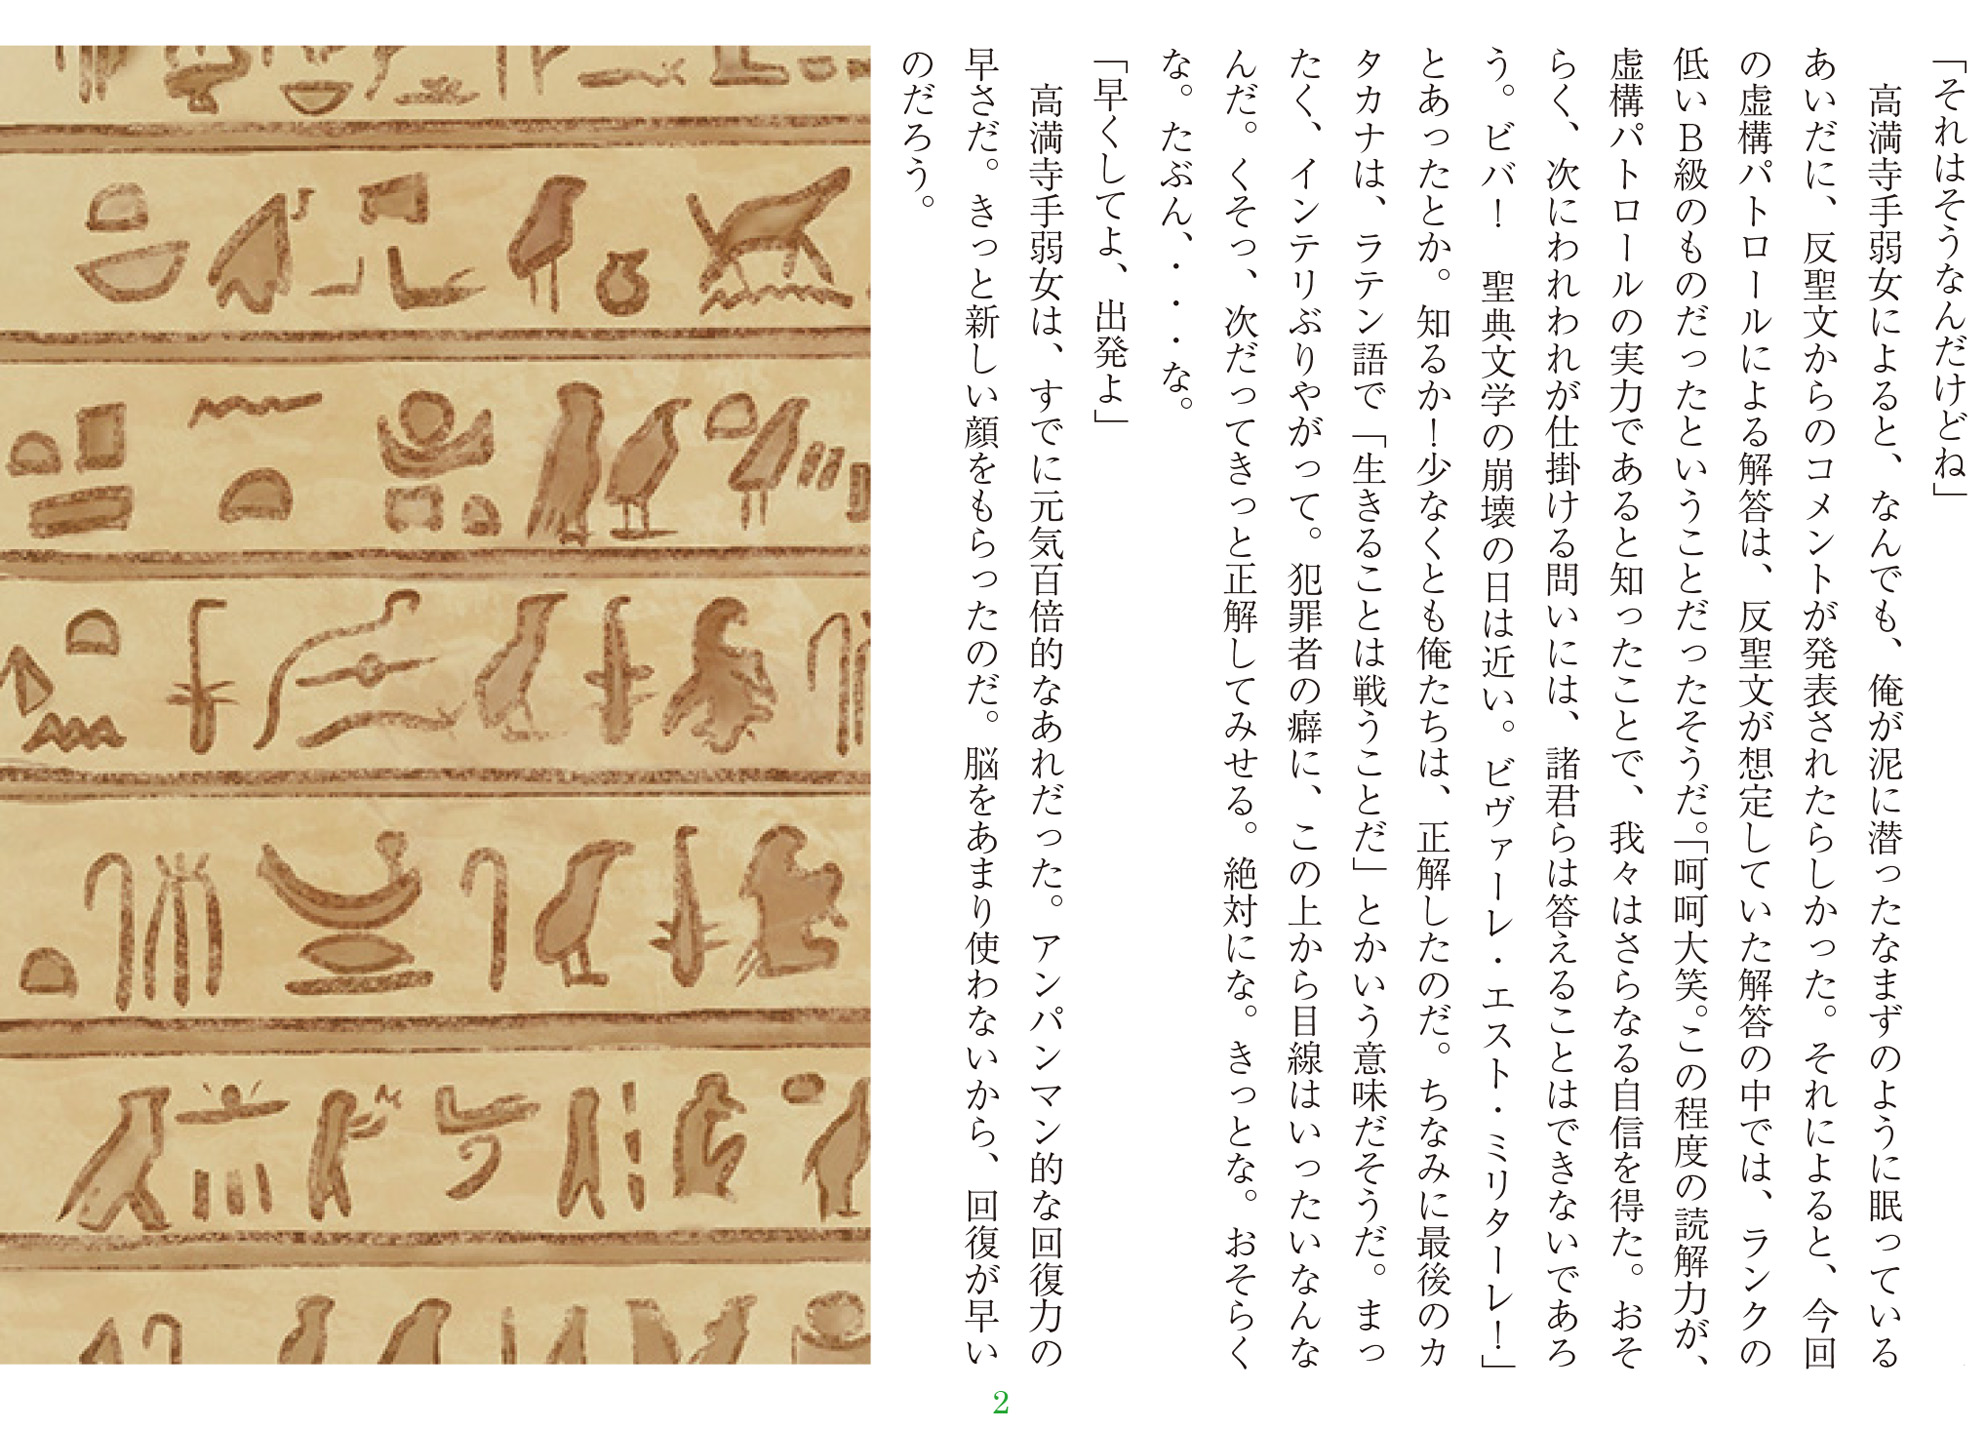 「それはそうなんだけどね」
　高満寺手弱女によると、なんでも、俺が泥に潜ったなまずのように眠っている
あいだに、反聖文からのコメントが発表されたらしかった。それによると、今回
の虚構パトロールによる解答は、反聖文が想定していた解答の中では、ランクの
低いＢ級のものだったということだったそうだ。「呵呵大笑。この程度の読解力が、
虚構パトロールの実力であると知ったことで、我々はさらなる自信を得た。おそ
らく、次にわれわれが仕掛ける問いには、諸君らは答えることはできないであろ
う。ビバ！　聖典文学の崩壊の日は近い。ビヴァーレ・エスト・ミリターレ！」
とあったとか。知るか！少なくとも俺たちは、正解したのだ。ちなみに最後のカ
タカナは、ラテン語で「生きることは戦うことだ」とかいう意味だそうだ。まっ
たく、インテリぶりやがって。犯罪者の癖に、この上から目線はいったいなんな
んだ。くそっ、次だってきっと正解してみせる。絶対にな。きっとな。おそらく
な。たぶん、・・・な。
「早くしてよ、出発よ」
　高満寺手弱女は、すでに元気百倍的なあれだった。アンパンマン的な回復力の
早さだ。きっと新しい顔をもらったのだ。脳をあまり使わないから、回復が早い
のだろう。
2